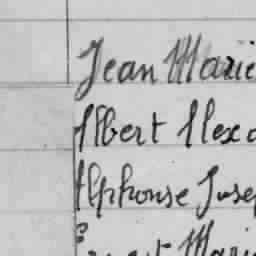 Jean Marie
Albert Alexa
Alphonse Josep
Marie